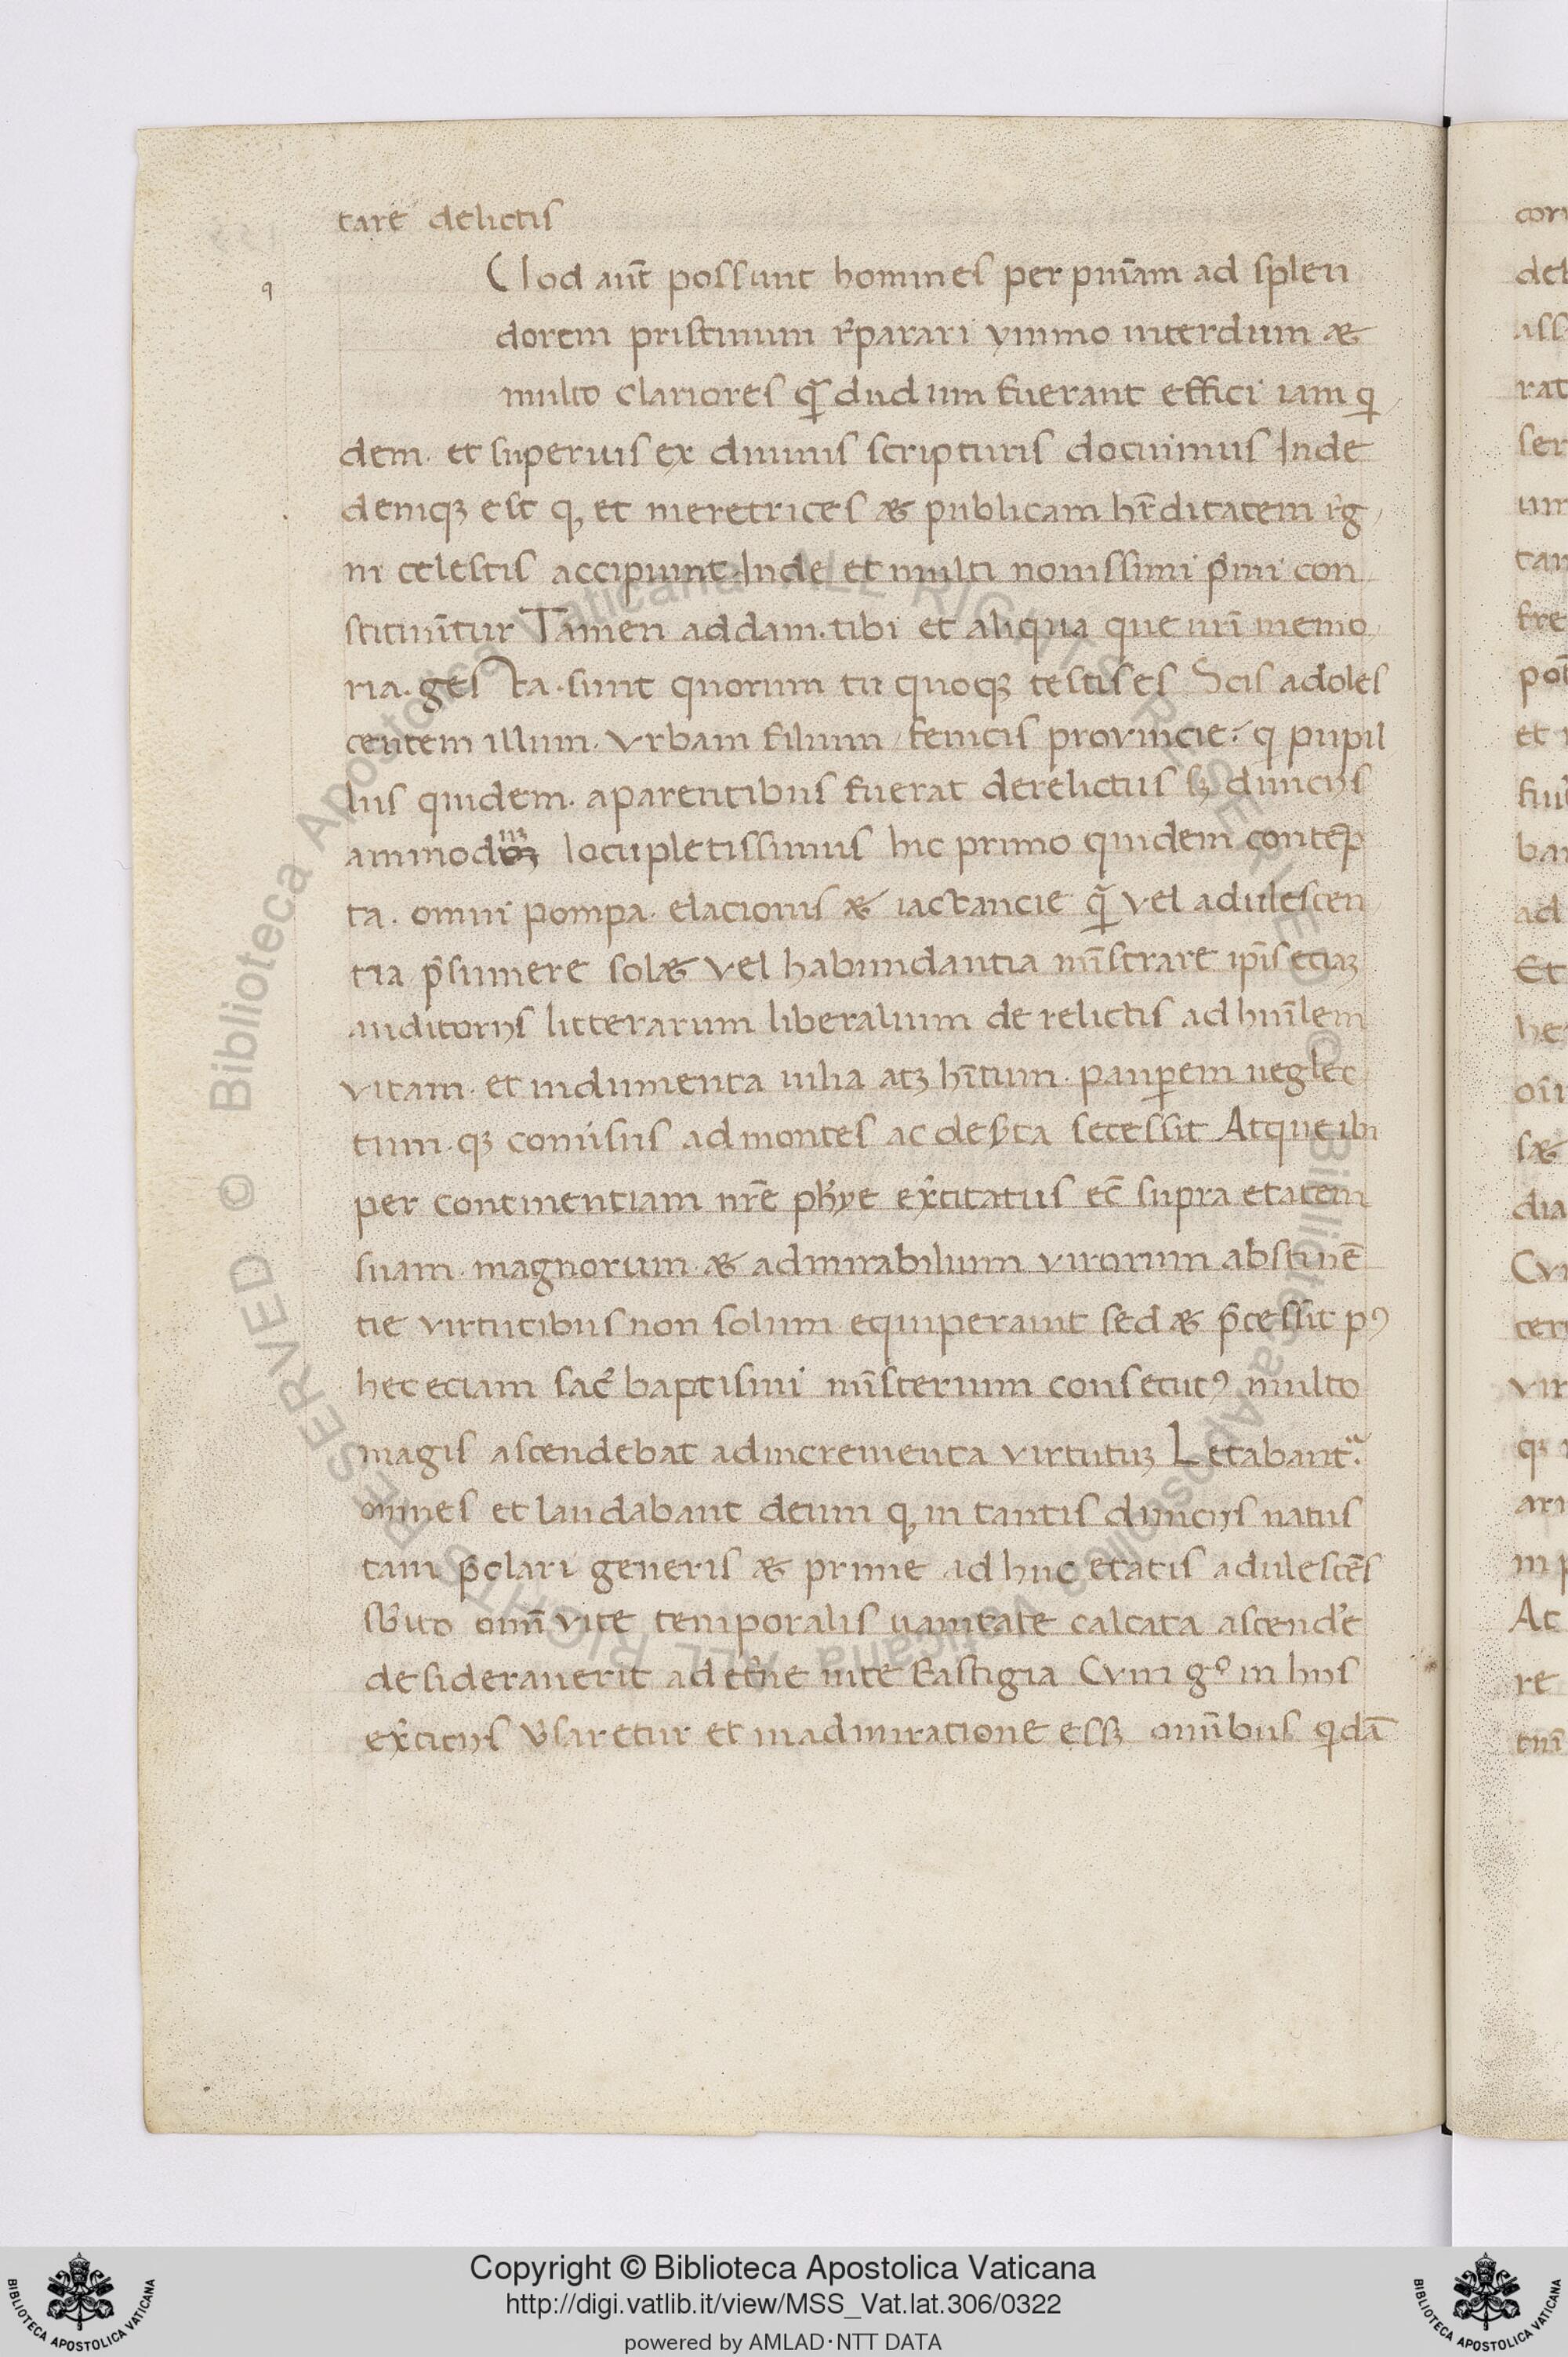 tare delictis
q
Uod aut̄ possunt homines per pnīam ad splen
dorem pristinum r̄parari ymmo interdum &
multo clariores qͣ̄ dudum fuerant effici iam q
dem. et superius ex diuinis scripturis docuimus Inde
deniqꝫ est ꝙ et meretrices & publicam hr̄editatem r̄g
ni celestis accipiunt Inde et multi nouissimi p̄mi con
stituūtur Tamen addam.tibi et aliqua que nr̄i memo
ria.ges ta.sunt quorum tu quoqꝫ testis es Scis adoles
centem illum. Vrbam filium fenicis provincie. q pupil
lus quidem. aparentibus fuerat derelictus sꝫ diuiciis
ammodum locupletissimus hic primo quidem contēp
ta. omni pompa. elacionis & iactancie qͣ̄ vel adulescen
tia p̄sumere sol& vel habundantia mīstrare ip̄is etiaꝫ
auditoriis litterarum liberalium de relictis ad huīlem
vitam. et indumenta uilia atꝫ hītum. pauꝑem neglec
tum.qꝫ conuisus ad montes ac deserta secessit Atque ibi
per continentiam nr̄e phye ex̄citatus ec̄ supra etatem
suam. magnorum.& admirabilium virorum abstinē
tie virtutibus non solum equiperauit sed & p̄cessit pꝰ
hec eciam sac̄ baptismi mīsterium consecutꝰ multo
magis ascendebat ad incrementa virtutuꝫ Letabantͣ.
omnes et laudabant deum ꝙ in tantis diuiciis natus
tam p̄clari generis & prime ad huc etatis adulescēs
sb̄ito omī vite temporalis uanitate calcata ascend̄e
desiderauerit ad et̄ne uite fastigia Cvm gº in hiis
ex̄citiis v̄saretur et in admiratione essꝫ omībus qdā
Copyright © Biblioteca Apostolica Vaticana
http://digi.vatlib.it/view/MSS_Vat.lat.306/0322
powered by AMLAD·NTT DATA